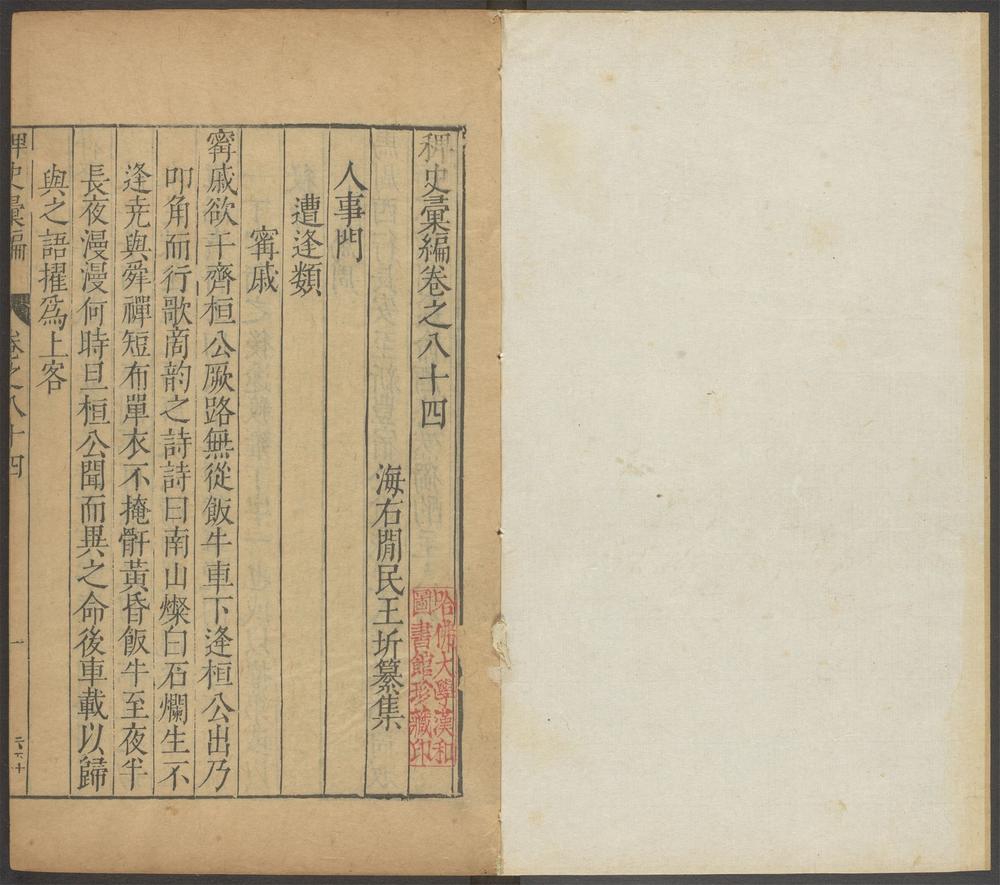 稗史彙編卷之八十四
海右閒民王圻纂集
哈佛大學漢和
圖書館珍藏印
人事門
遭逢類
甯戚
甯戚欲干齊桓公厥路無從飯牛車下逢桓公出乃
叩角而行歌商韵之詩詩曰南山燦白石爛生不
逢尭與舜禪短布單衣不掩骭黃昏飯牛至夜半
長夜漫漫何時旦桓公聞而異之命後車載以歸
與之語擢爲上客
稗史彙編 卷之八十四 一